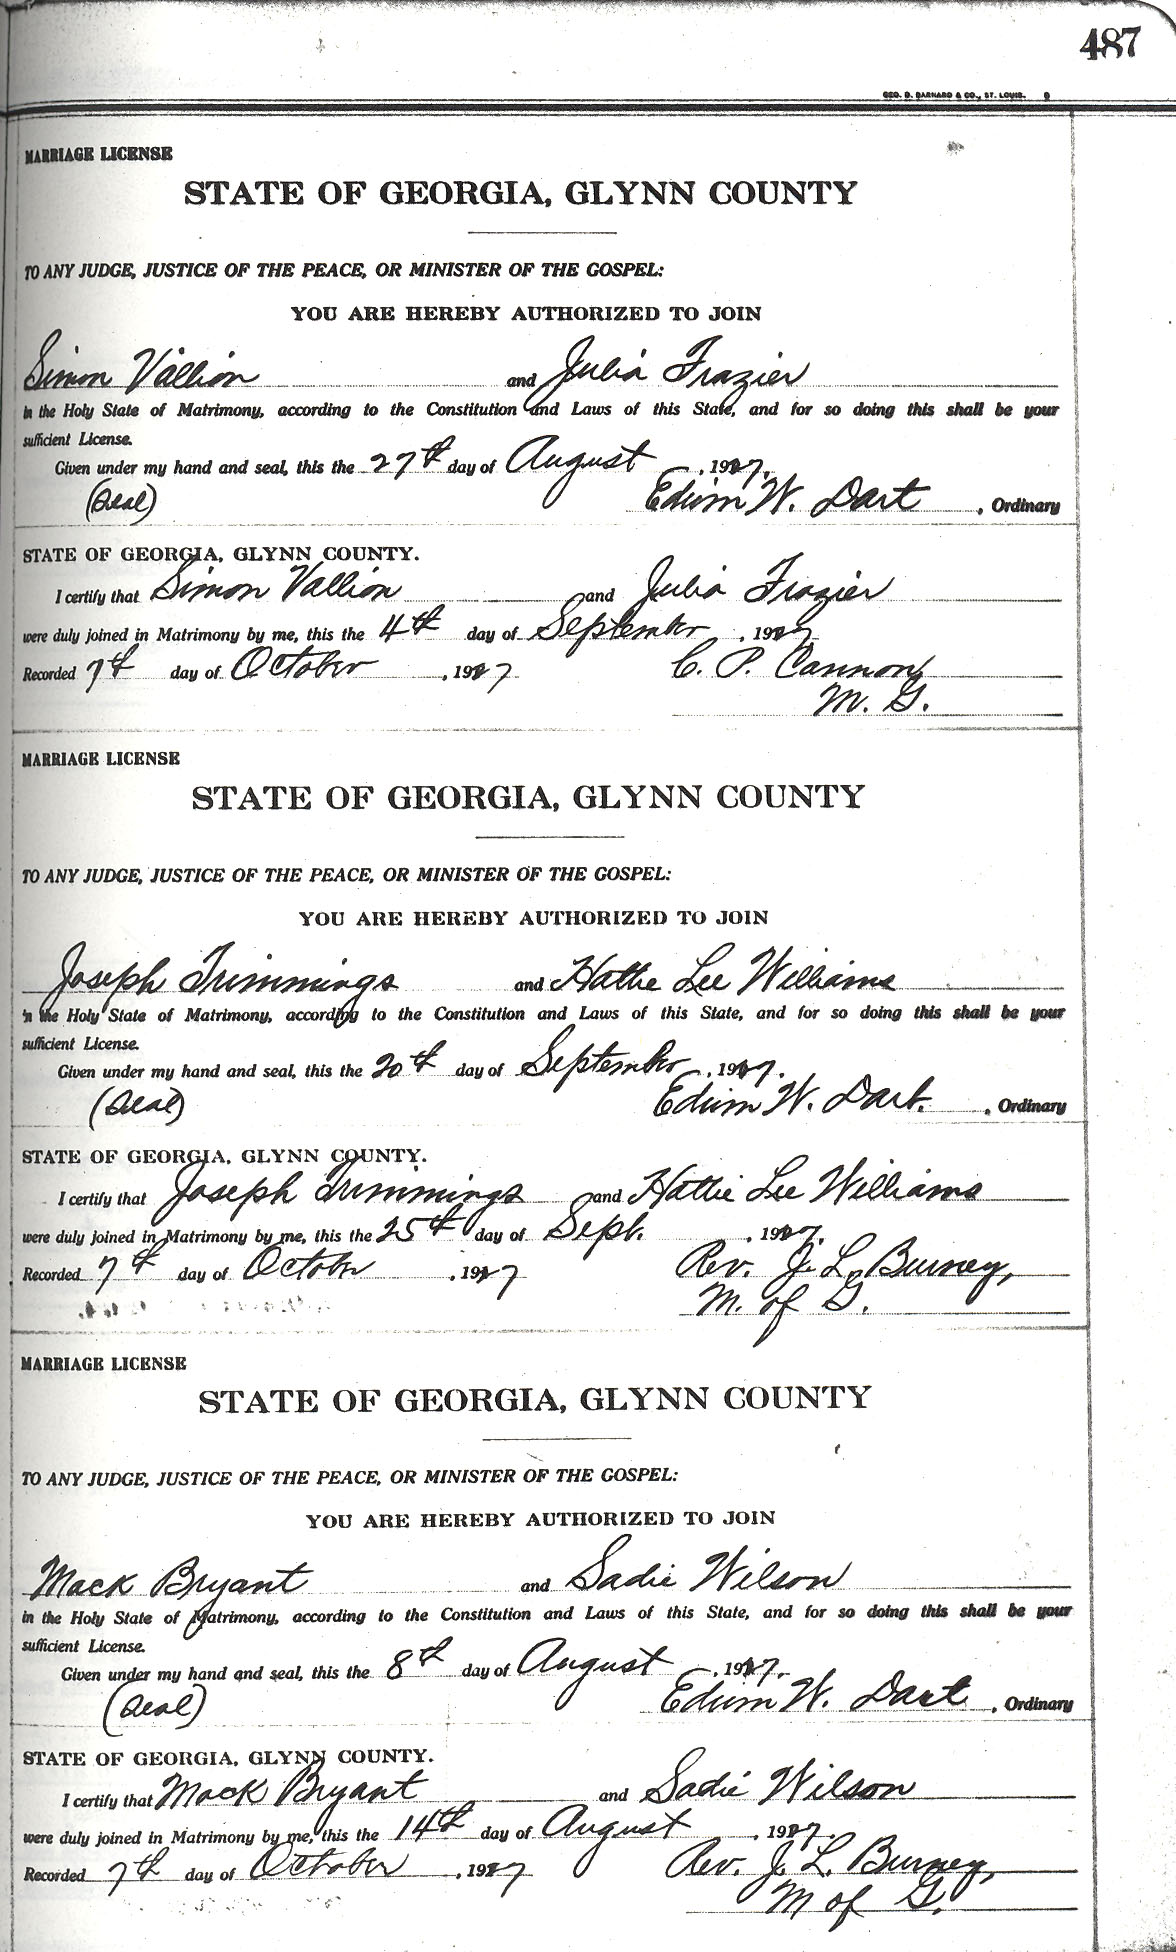 487
GEO. D. BARNARD & CO., ST. LOUIS.
MARRIAGE LICENSE
STATE OF GEORGIA, GLYNN COUNTY
TO ANY JUDGE, JUSTICE OF THE PEACE, OR MINISTER OF THE GOSPEL:
YOU ARE HEREBY AUTHORIZED TO JOIN
Simon Vallion and Julia Frazier
in the Holy State of Matrimony, according to the Constitution and Laws of this State, and for so doing this shall be your
sufficient License.
Given under my hand and seal, this the 27th day of August, 1927.
(Seal) Edwin W. Dart, Ordinary
STATE OF GEORGIA, GLYNN COUNTY.
I certify that Simon Vallion and Julia Frazier
were duly joined in Matrimony by me, this the 4th day of September, 1927
Recorded 7th day of October, 1927 C. P. Cannon,
M. G.
MARRIAGE LICENSE
STATE OF GEORGIA, GLYNN COUNTY
TO ANY JUDGE, JUSTICE OF THE PEACE, OR MINISTER OF THE GOSPEL:
YOU ARE HEREBY AUTHORIZED TO JOIN
Joseph Trimmings and Hattie Lee Williams
in the Holy State of Matrimony, according to the Constitution and Laws of this State, and for so doing this shall be your
sufficient License.
Given under my hand and seal, this the 20th day of September, 1927.
(Seal) Edwin W. Dart, Ordinary
STATE OF GEORGIA, GLYNN COUNTY.
I certify that Joseph Trimmings and Hattie Lee Williams
were duly joined in Matrimony by me, this the 25th day of Sept. 1927.
Recorded 7th day of October, 1927 Rev. J. L. Burney,
M. of G.
MARRIAGE LICENSE
STATE OF GEORGIA, GLYNN COUNTY
TO ANY JUDGE, JUSTICE OF THE PEACE, OR MINISTER OF THE GOSPEL:
YOU ARE HEREBY AUTHORIZED TO JOIN
Mack Bryant and Sadie Wilson
in the Holy State of Matrimony, according to the Constitution and Laws of this State, and for so doing this shall be your
sufficient License.
Given under my hand and seal, this the 8th day of August, 1927.
(Seal) Edwin W. Dart, Ordinary
STATE OF GEORGIA, GLYNN COUNTY.
I certify that Mack Bryant and Sadie Wilson
were duly joined in Matrimony by me, this the 14th day of August, 1927.
Recorded 7th day of October, 1927 Rev. J. L. Burney,
M of G.